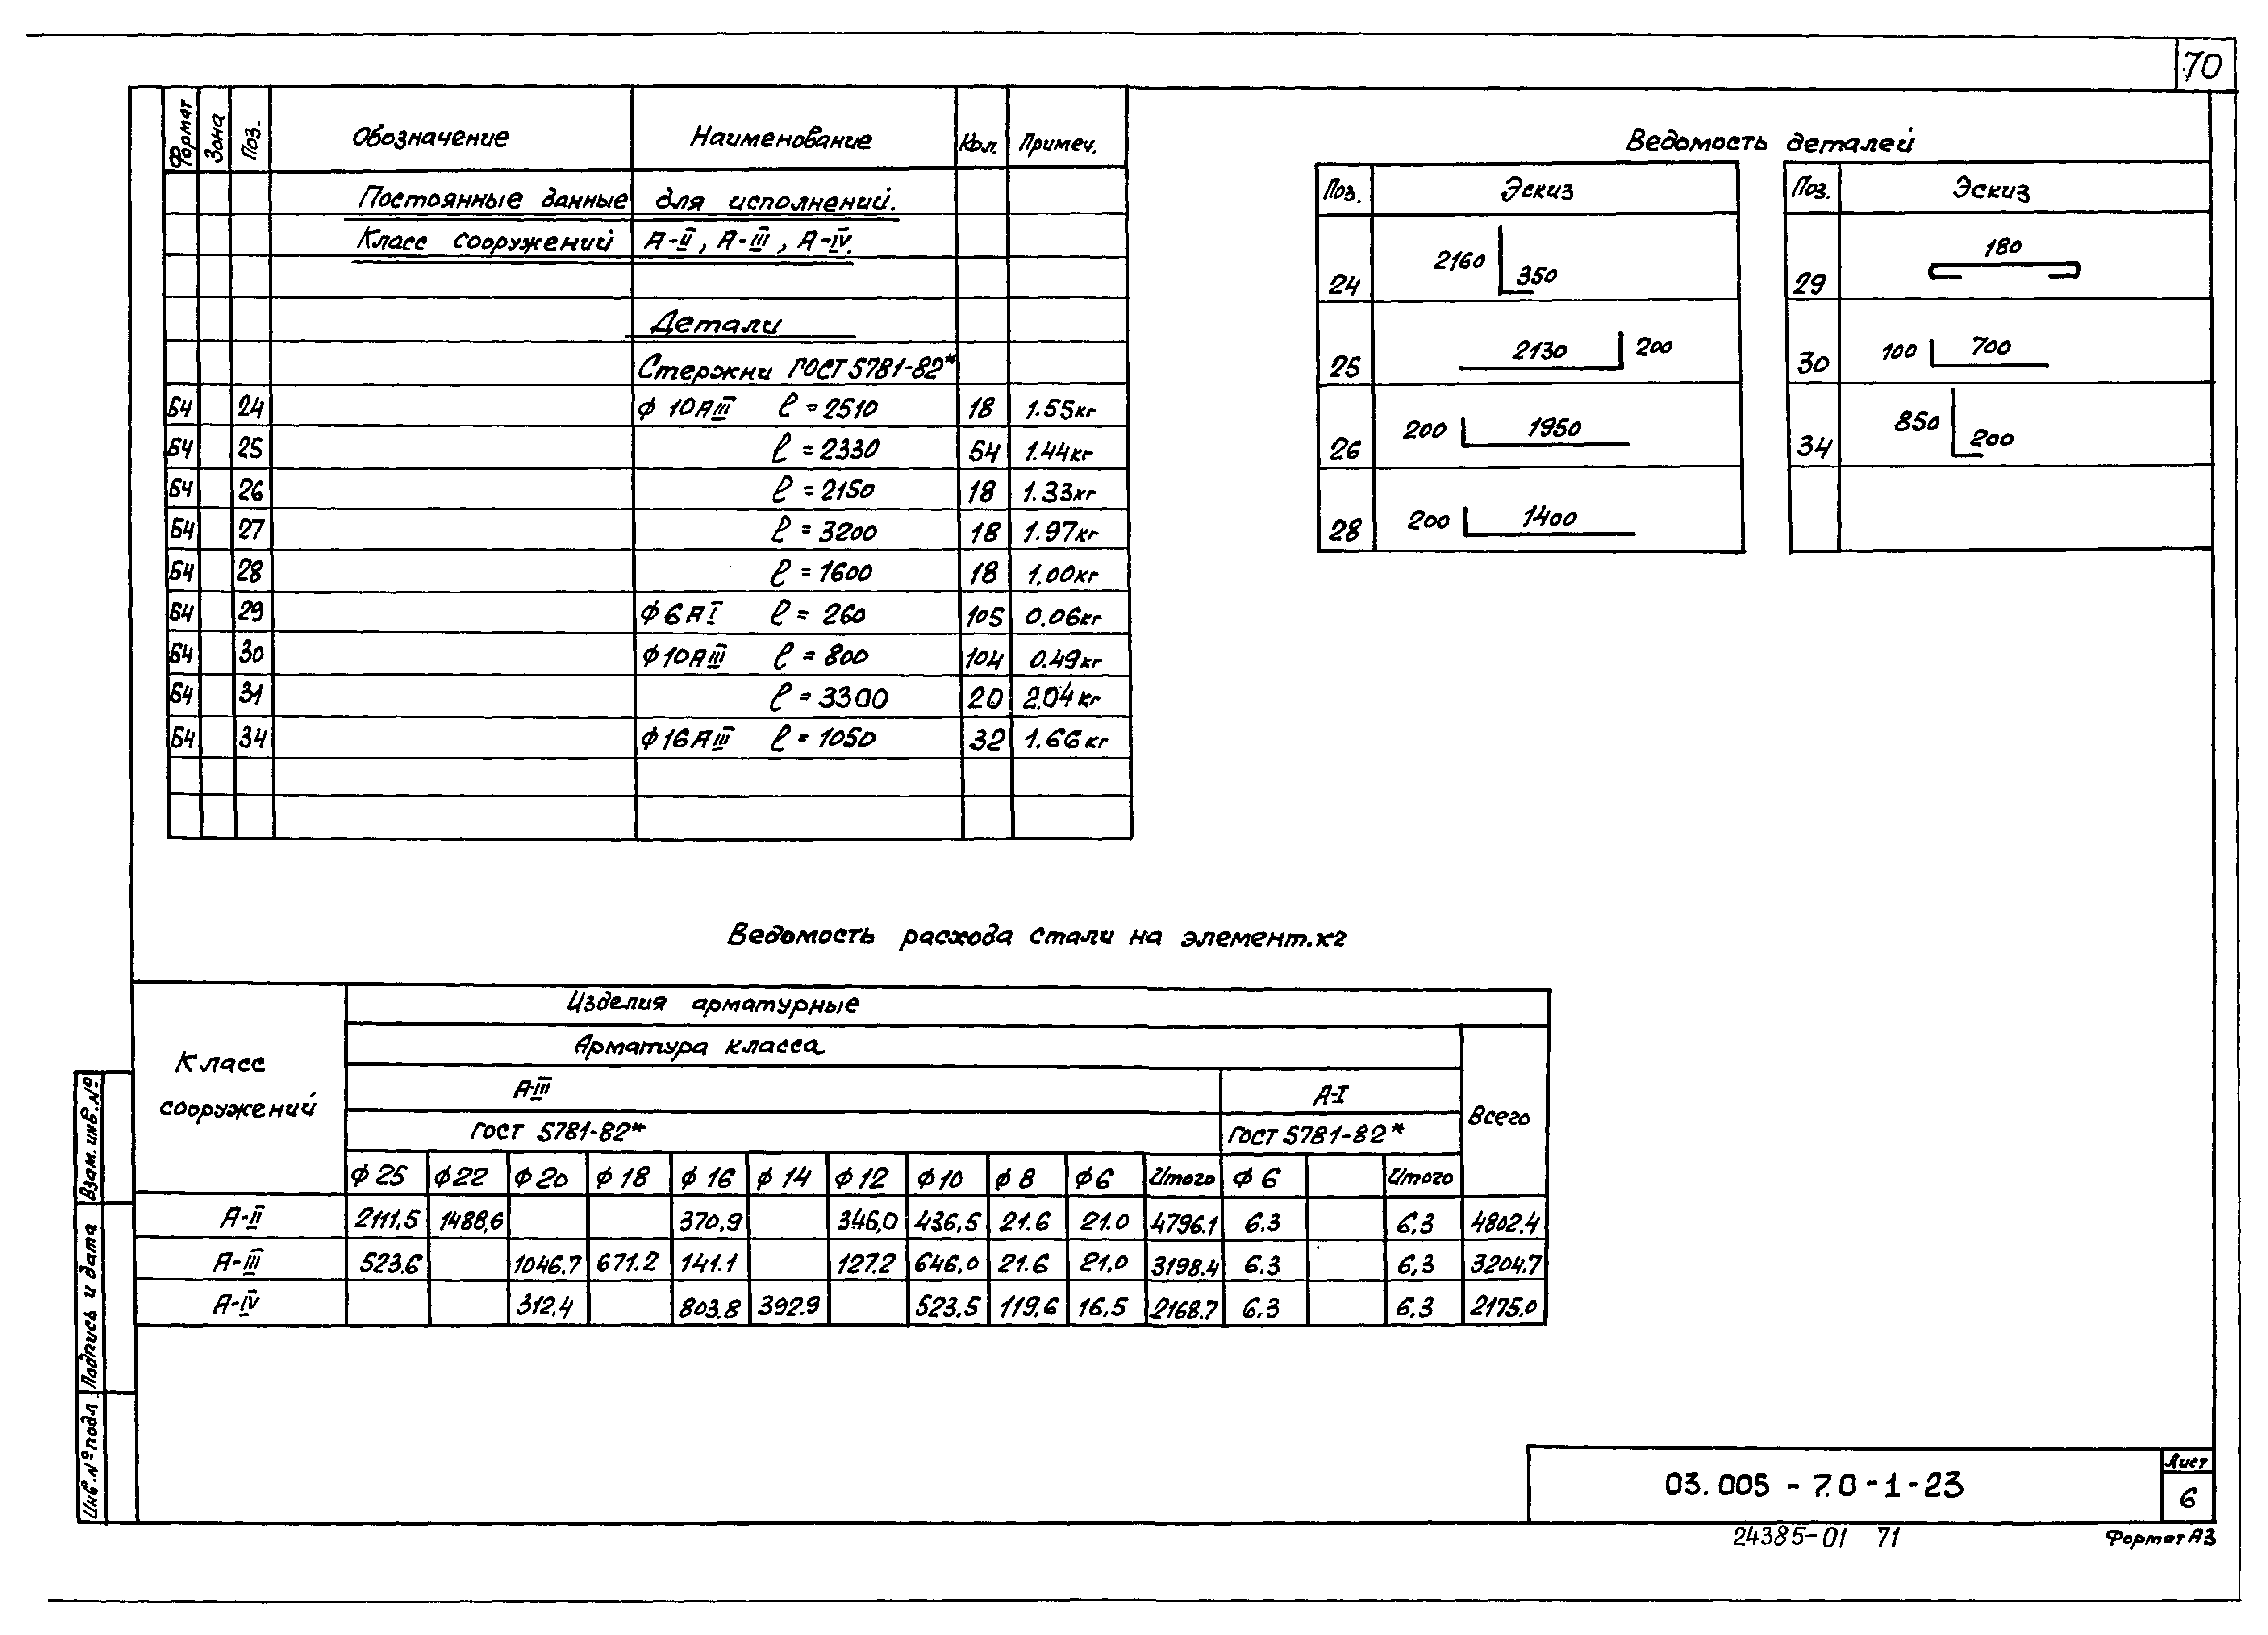 70
Формат Зона Поз. Обозначение Наименование Кол. Примеч.
Постоянные данные для исполнений.
Класс сооружений А-II, А-III, А-IV.
Детали
Стержни ГОСТ 5781-82*
БЧ 24 ф 10АIII ℓ = 2510 18 1.55кг
БЧ 25 ℓ = 2330 54 1.44кг
БЧ 26 ℓ = 2150 18 1.33кг
БЧ 27 ℓ = 3200 18 1.97кг
БЧ 28 ℓ = 1600 18 1.00кг
БЧ 29 ф 6 АI ℓ = 260 105 0.06кг
БЧ 30 ф10АIII ℓ = 800 104 0.49кг
БЧ 31 ℓ = 3300 20 2.04кг
БЧ 34 ф16АIII ℓ = 1050 32 1.66кг
Ведомость деталей
Поз. Эскиз
24 2160 350
25 2130 200
26 200 1950
28 200 1400
Поз. Эскиз
29 180
30 100 700
34 850 200
Ведомость расхода стали на элемент.кг
Класс сооружений
Изделия арматурные
Арматура класса
Всего
А-III А-I
ГОСТ 5781-82* ГОСТ 5781-82*
ф 25 ф22 ф20 ф 18 ф 16 ф 14 ф 12 ф10 ф 8 ф6 Итого ф 6 Итого
А-II 2111,5 1488,6 370.9 346,0 436,5 21.6 21.0 4796.1 6.3 6,3 4802.4
А-III 523.6 1046.7 671.2 141.1 127.2 646,0 21.6 21,0 3198.4 6.3 6,3 3204.7
А-IV 312,4 803.8 392.9 523,5 119,6 16.5 2168.7 6,3 6,3 2175.0
Взам. инв. №
Подпись и дата
Инв.№подл.
03.005 - 7.0-1-23
Лист
6
24385-01 71
Формат А3